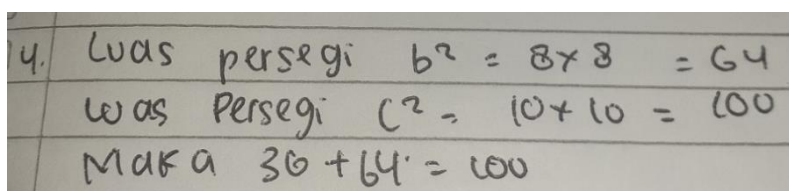 4. Luas persegi b² = 8x8 = 64
Luas Persegi C² = 10x10 = 100
Maka 36 + 64 = 100